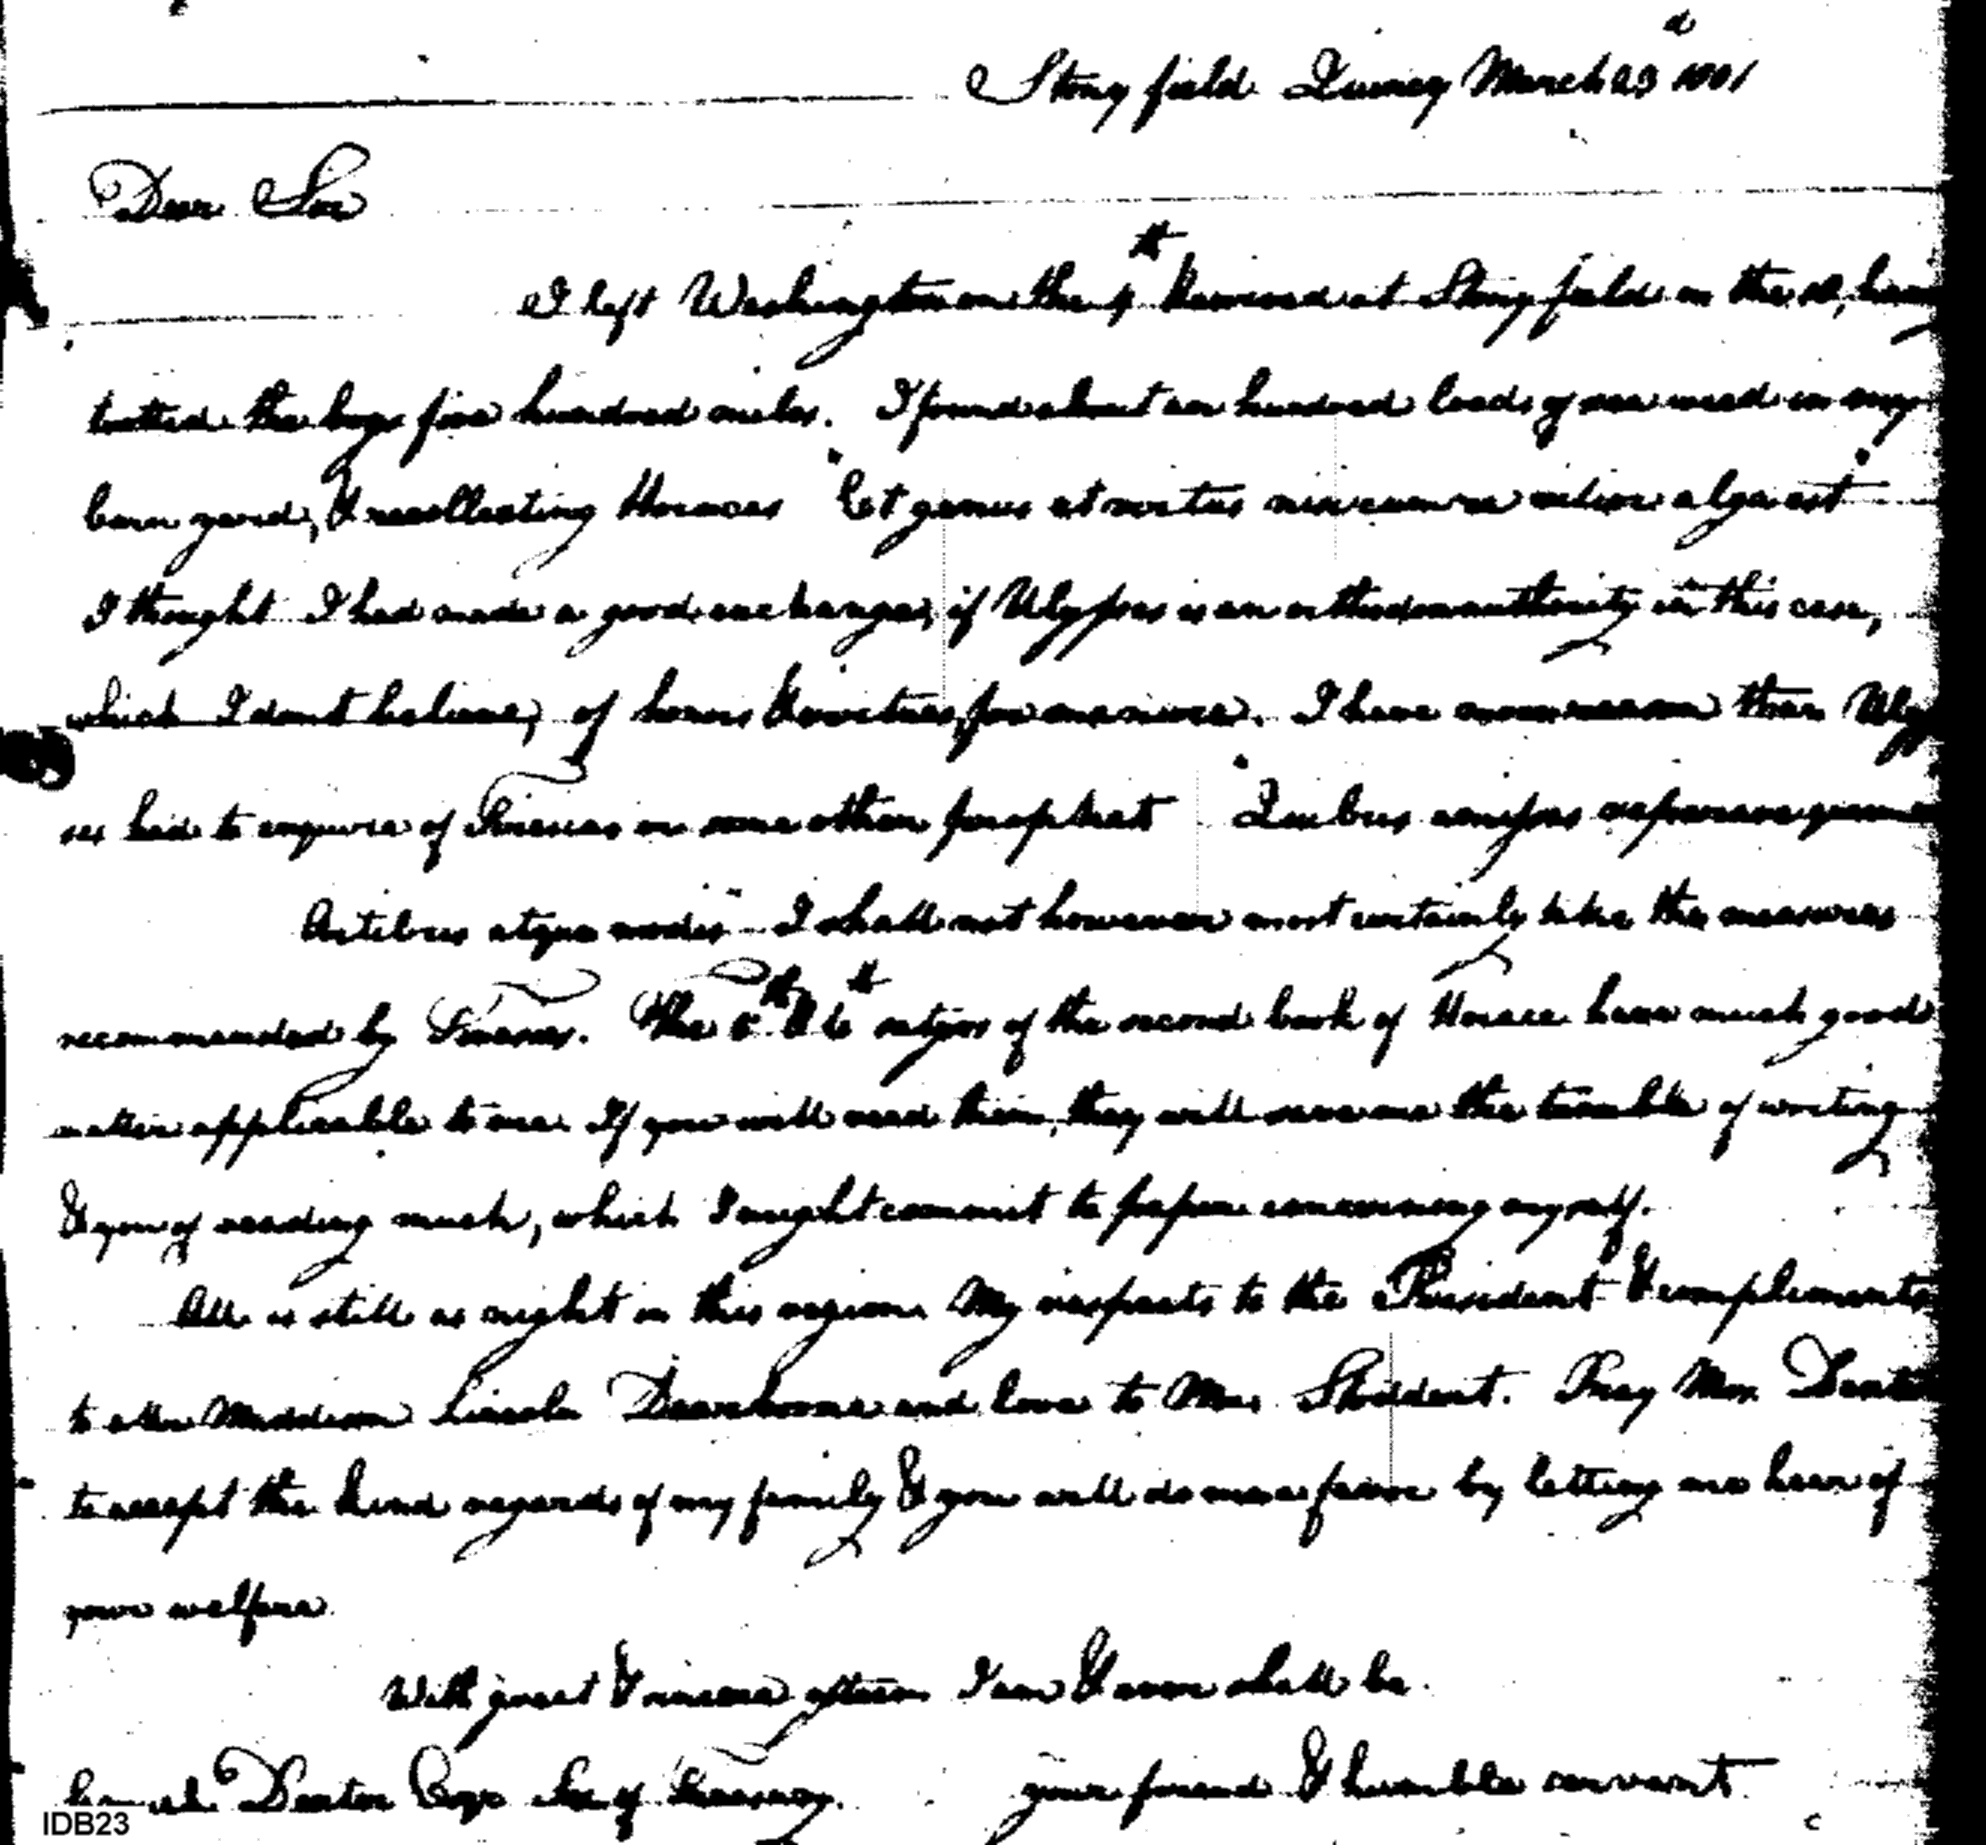 Stony field Quincy March 23d 1801
Dear Sir
I left Washington on the 4th & arrived at Stony field on the 18, having
trotted the bogs five hundred miles. I found about an hundred loads of sea weed in my
barn yard, & recollecting Horaces "Et genus et virtus nisi cum re vilior alga est"
I thought I had made a good exchange, if Ulysses is an orthodox authority in this case,
which I dont believe, of honors & virtues, for manure. I have more reason than Ulys
ses had to enquire of Tiresias or some other prophet "Quibus amissas reparare queam
Artibus atque modis" I shall not however most certainly take the measures
recommended by Tiresias. The 5th & 6th satyrs of the second book of Horace have much good
matter applicable to me. If you will read them, they will save me the trouble of writing
& you of reading much, which I might commit to paper concerning myself.
All is still as night in this region. My respects to the President & compliments
to Mr Maddison Lincoln Dearborne and love to Mr Stoddert. Pray Mrs Dexter
to accept the kind regards of my family & you will do me a favor by letting me hear of
your welfare.
With great & sincere esteem I am & ever shall be
Samuel Dexter Esqr Sec of Treasury. your friend & humble servant
IDB23